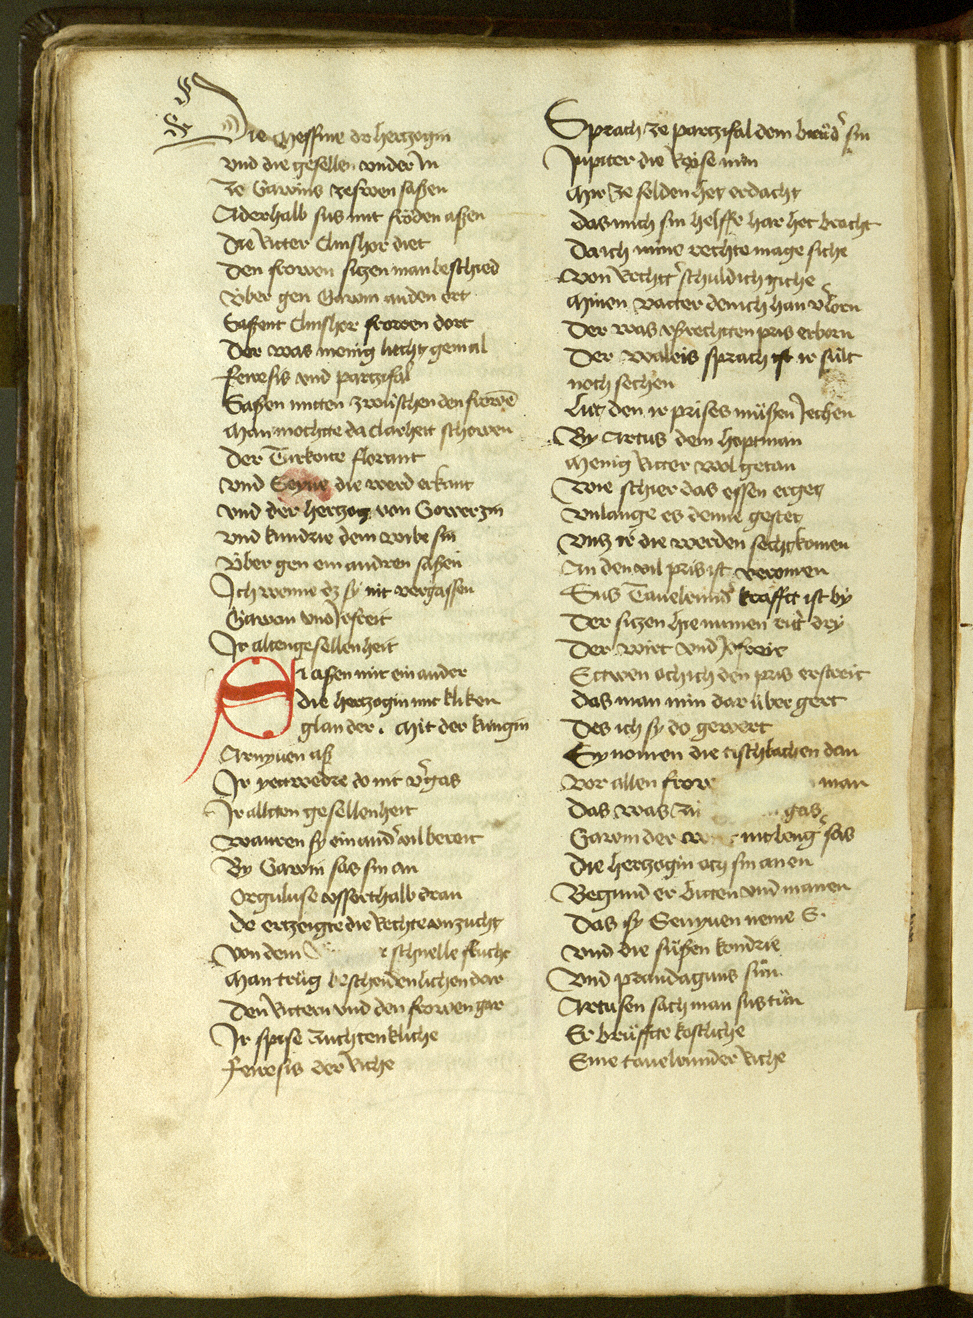 Die messnie der hertzogin
vnd die gesellen vnder In
ze Gawins zeswen saßen
Aderhalb sus mit fröden aßen
Die Ritter Clinshor diet
Den frowen sitzen man beschied
Vber gen Gawin an den ort
Saßent Clinshor frowen dort
Der was menig liecht gemal
ferefis vnd partzifal
Saßen mitten zwüschen den frowē
Man mochte da clarheit schowen
Der Turkoite florant
vnd Seyue die werd erkant
vnd der hertzog von Gowerzin
vnd kundrie dem wibe sin
Vber gen ein andren saßen
Ich wenne dz sy nit vergassen
Gawan vnd Jofreit
Ir alten gesellenheit
Si assen mit ein ander
die hertzogin mit kliken
glander . Mit der küngin
Arnyuen aß
Ir yettwedre do nit v'gas
Ir allten gesellenheit
Waren sy ein and' vil bereit
By Gawin sas sin an
Orguluse vsserthalb dran
do ertzeigte die rechte vnzucht
von dem schnelle flucht
Man trüg bescheidenlichen dar
Den Rittern vnd den frowen gar
Ir spise zuchtenkliche
ferefis der Riche
Sprach ze partzifal dem brüd' sin
Jupiter die Reise min
Mir ze selden het erdacht
das mich sin helffe har het bracht
Da ich mine rechte mage siche
von recht' schuld ich giche
Minen vatter den ich han v'lorn
Der was vs rechtten pris erborn
Der waleis sprach ir sült
noch sechen
Lüt den ir prises müßen Jechen
By Artus dem hoptman
Menig Ritter wol getan
Wie schier das essen erget
vnlange es denne gestet
vntz ir die werden secht komen
An den vil pris ist vernomen
Sus Tauelrund' kräfft ist by
Der sitzen hie nunnen rit' dry
Der wirt vnd Jofreit
Ettwen och ich den pris erstreit
das man min dar über gert
Des ich sy do gewert
Sy nomen die tischlachen dan
vor allen frow man
Das was zit gas
Gawin der nit leng' sas
die hertzogin och sin anen
Begund er bitten vnd manen
Das sy Seiyuen neme S.
vnd die süßen kondrie
vnd prandaguns sün
Artusen sach man sus tün
Er brüffte kostliche
Eine tauelrunder riche